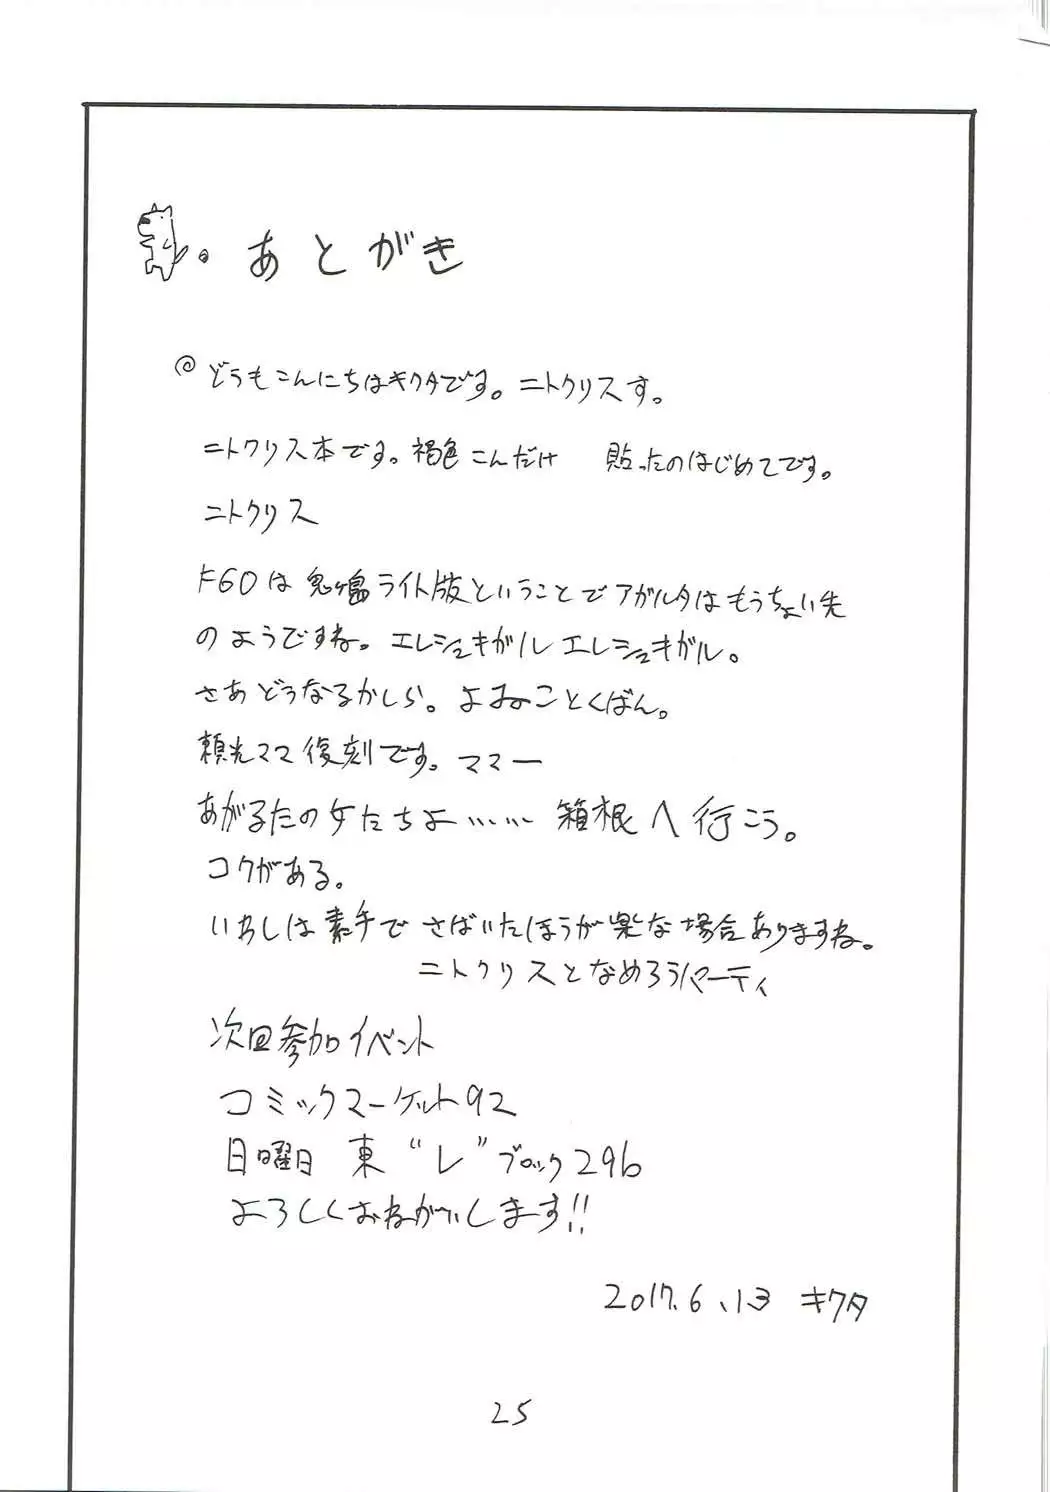 あとがき
◎どうもこんにちはキクタです。ニトクリスす。
ニトクリス本です。褐色こんだけ 貼ったのはじめてです。
ニトクリス
FGOは鬼ヶ島ライト版ということでアガルタはもうちょい先
のようですね。エレシュキガルエレシュキガル。
さあどうなるかしら。よみのことくばん。
頼光ママ復刻です。ママー
あがるたの女たちよ……箱根へ行こう。
コクがある。
いわしは素手でさばいたほうが楽な場合ありますね。
ニトクリスとなめろうパーティ
次回参加イベント
コミックマーケット92
日曜日 東“レ”ブロック29b
よろしくおねがいします!!
2017.6.13 キクタ
25